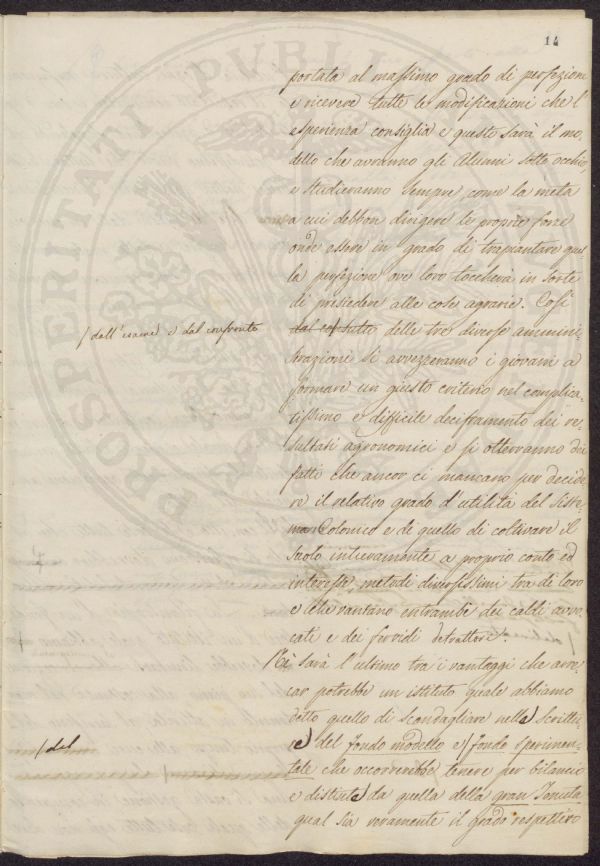 14
portata al massimo grado di perfezione
e ricevere tutte le modificazioni che l'
esperienza consiglia e questo sarà il mo,
dello che avranno gli Alunni sotto occhio,
e studieranno sempre come la meta
a cui debbon dirigere le proprie forze
onde essere in grado di trapiantare quel
la perfezione ove loro toccherà in sorte
di presiedere alle cose agrarie. Così
/ dall'esame e dal confronto
delle tre diverse ammini
strazioni si avvezzeranno i giovani a
formare un giusto criterio nel complica,
tissimo e difficile deciframento dei re,
sultati agronomici e si otterranno dei
fatti che ancor ci mancano per decide
re il relativo grado d'utilità del Siste
ma Colonico e di quello di coltivare il
Suolo intieramente a proprio conto ed
interesse, metodi diversissimi tra di loro
e che vantano entrambi dei caldi avvo,
cati e dei fervidi detrattori.
Nè sarà l'ultimo tra i vantaggi che arre
car potrebbe un istituto quale abbiamo
detto quello di scandagliare nelle Scrittu
re del fondo modello e / fondo sperimen
/ del
tale che occorrerebbe tenere per bilancio
e distinte da quella della gran Tenuta
qual sia veramente il grado respettivo
PROSPERITATI PUBLI